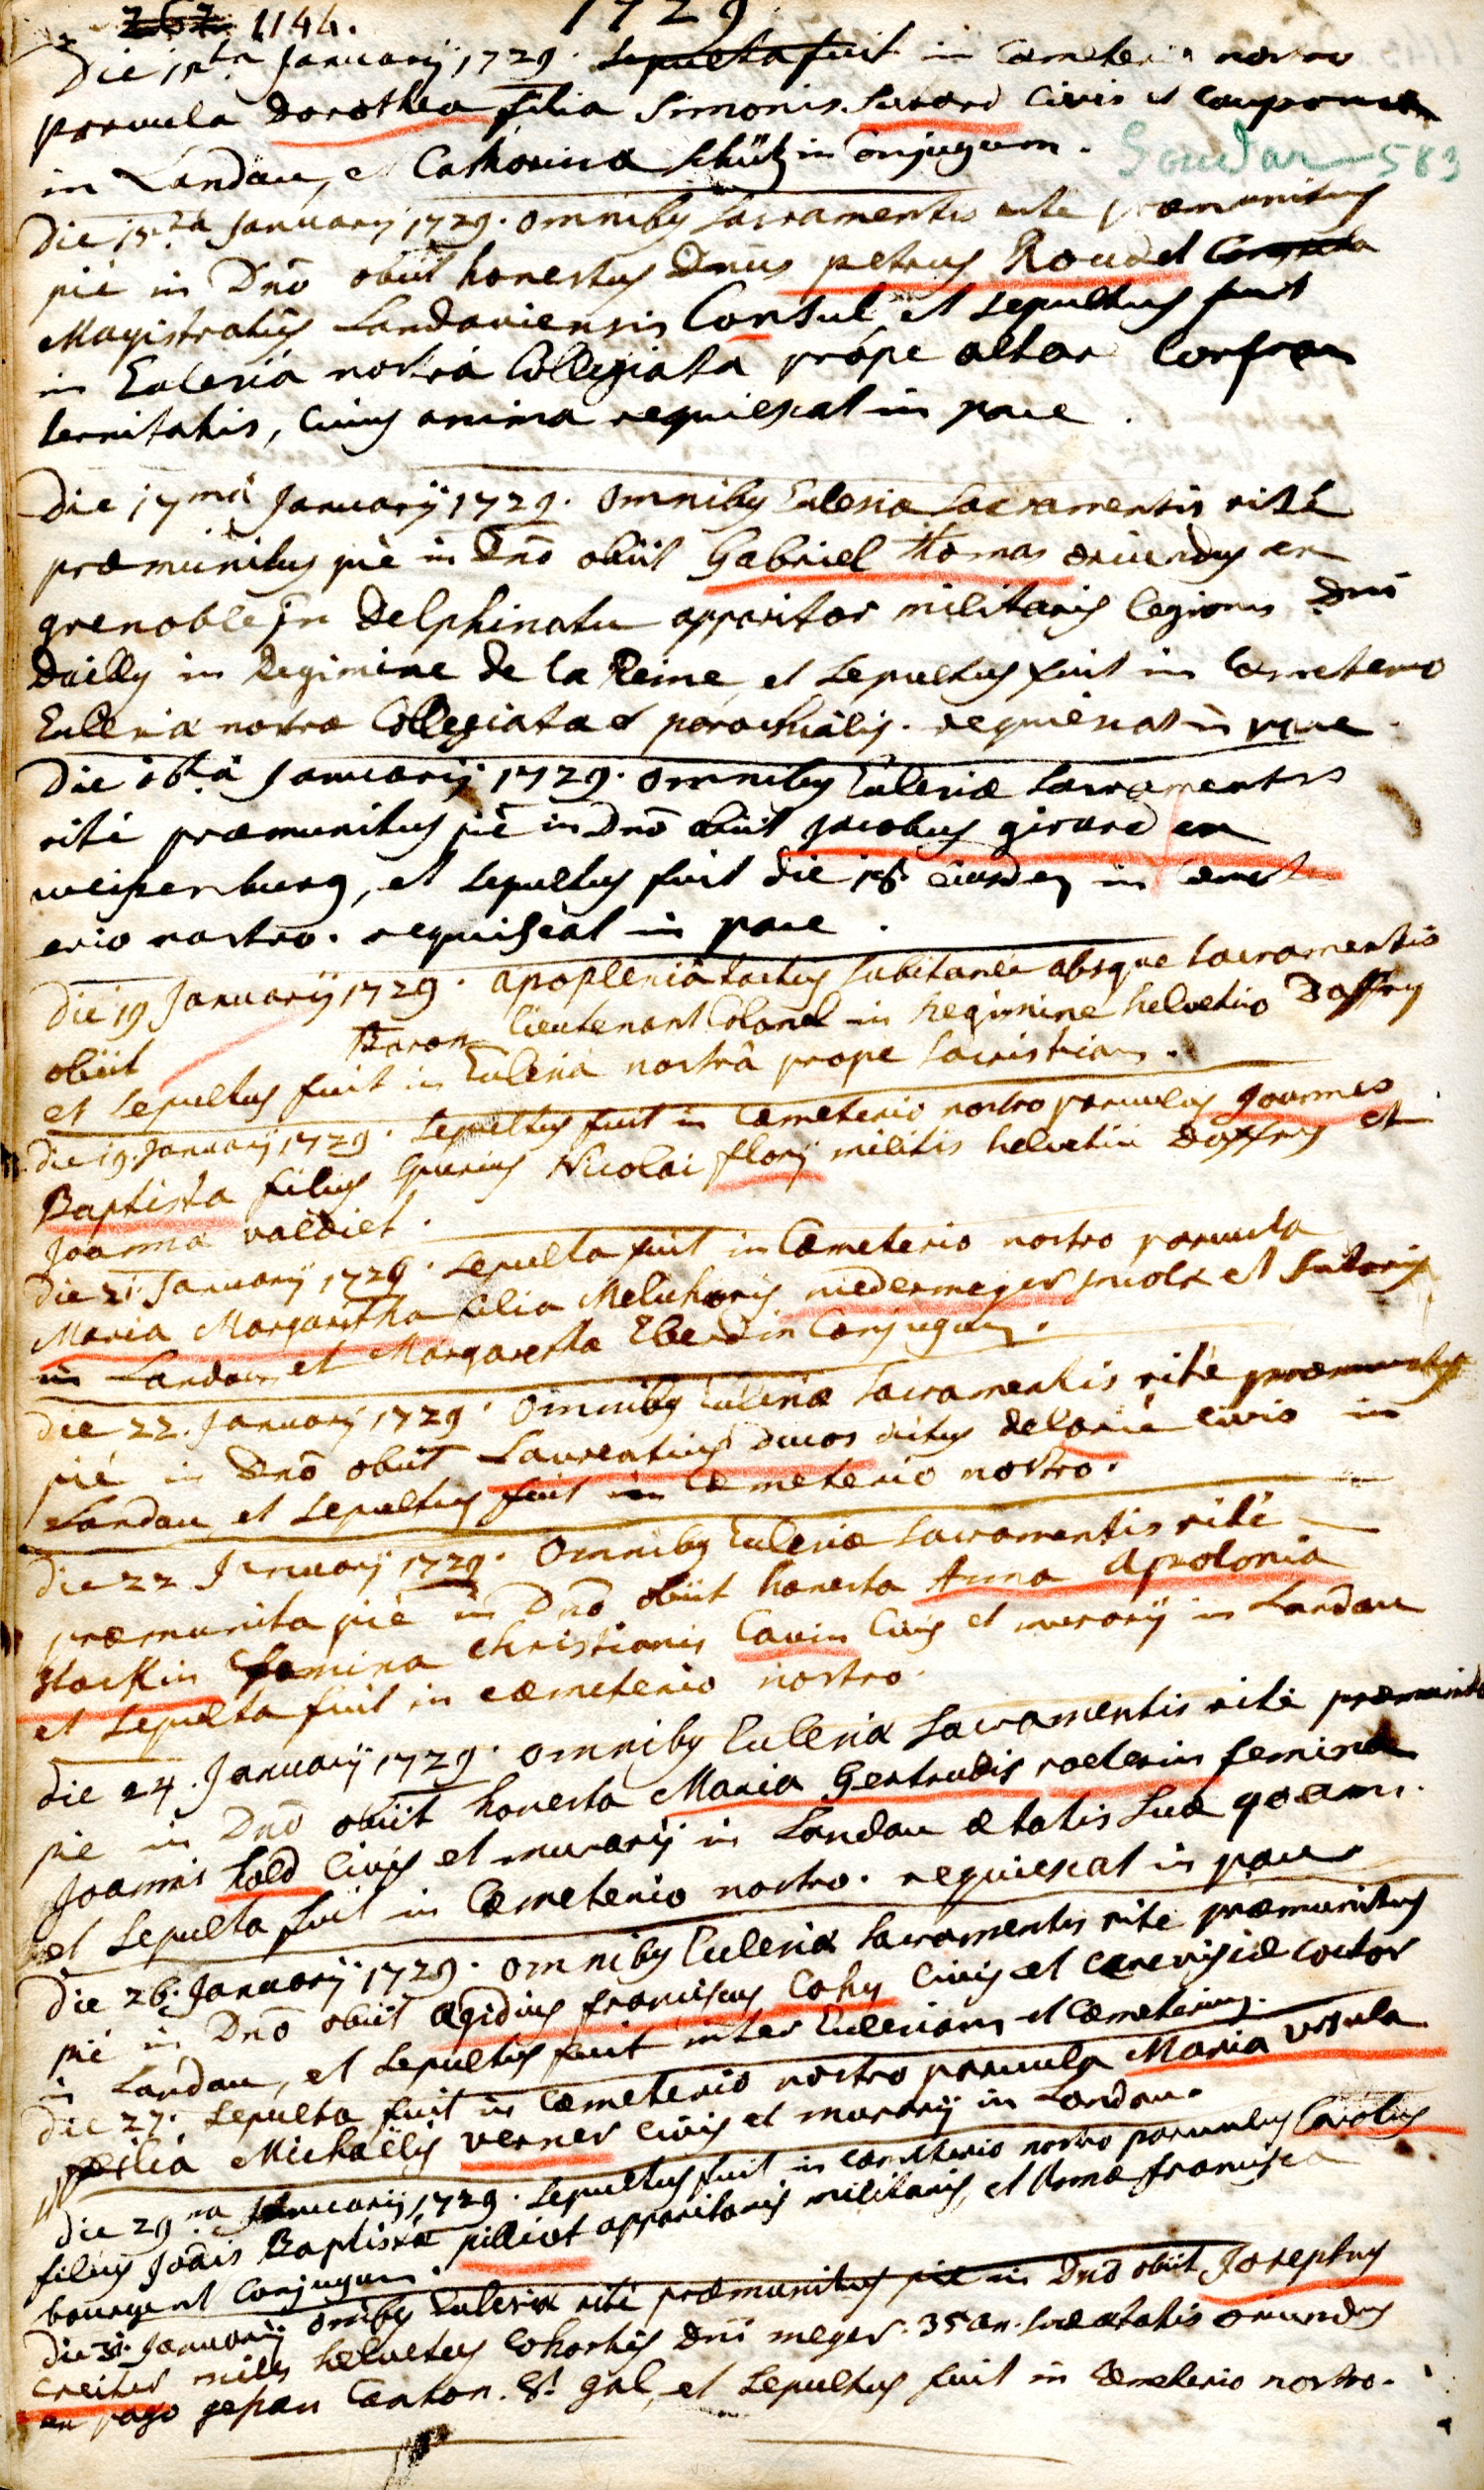 262 1144.
1729
Die 15ta Januarij 1729. Sepulta fuit in Cæmeterio nostro
parvula Dorothea filia Simonis Surard Civis et Cauponis
in Landau, et Catharina Schütz in Conjugum.
Soudar 583
Die 15ta Januarij 1729. omnibq Sacramentis rite præmunitus
pié in Dnō obiit honestus Dnūs petrus Roudel
Magistratûs Landaviensis Consul et sepultus fuit
in Eclesia nostrâ Collegiatâ própe altar Confra
ternitatis, Cuius anima requiescat in pace.
Die 17mâ Januarij 1729. omnibq Eclesiæ Sacramentis rité
præmunitus pié in Dnō obiit Gabriel thomas oriundus ex
grenoble in Delphinatu apparitor militaris legionis Dni
Dailly in Regimine de la Reine et sepultus fuit in Cæmeterio
Eclesiæ nostræ Collegiatæ & parochialis. requiescat in pace.
Die 18tâ Januarij 1729. omnibq Eclesiæ Sacramentis
rité præmunitus pié in Dnō obiit Jacobus girard ex
weissenburg, et sepultus fuit die 18. eiusdem in Cæmet
erio nostro. requiescat in pace.
Die 19 Januarij 1729. apoplexiâ tactus subitanée absque sacramentis
obiit Baron lieutenant Colonel in Regimine helvetico Daffry
et sepultus fuit in Eclesiâ nostrâ prope sacristiam.
Die 19. Januarij 1729. sepultus fuit in Cæmeterio nostro parvulus Joannes
Baptista filius spurius Nicolai flory militis helvetici Daffry et
Joanna valdiet.
Die 21. Januarij 1729. sepulta fuit in Cæmeterio nostro parvula
Maria Margaritha filia Melchioris niedermeyer incolæ et sutoris
in Landau et Margaretha Eberdin Conjugum.
Die 22. Januarij 1729. omnibq Eclesiæ Sacramentis rité præmunitus
pié in Dnō obiit Laurentius ducos dictus delarié civis in
Landau et sepultus fuit in Cæmeterio nostro.
Die 22 Januarij 1729. omnibq Eclesiæ Sacramentis rité
præmunita pié in Dnō obiit honesta Anna Apolonia
stockin femina Christianis Cauin Civis et murarij in Landau
et sepulta fuit in cæmeterio nostro.
Die 24. Januarij 1729. omnibq Eclesiæ Sacramentis rité præmunita
pie in Dnō obiit honesta Maria Gertrudis roeterin femina
Joannis hold Civis et murarij in Landau ætatis suæ 40 ann.
et sepulta fuit in Cæmeterio nostro. requiescat in pace
Die 26. Januarij 1729. omnibq Eclesiæ Sacramentis rite præmunitus
pié in Dnō obiit ægidius franciscus Cohy Civis et cerevisiæ coctor
in Landau, et sepultus fuit inter Eclesiam et Cæmeterium.
Die 27. sepulta fuit in Cæmeterio nostro parvula Maria Ursula
filia Michaëlis verner Civis et murarij in Landau.
Die 29na Januarij 1729. sepultus fuit in cæmeterio nostro parvulus Carolus
filius Joāis Baptistæ pilliot apparitoris militaris, et Annæ francisca
bourgeret Conjugum.
Die 31. Januarij omibq Eclesiæ rité præmunitus pié in Dnō obiit Josephus
creiter miles helvetus Cohortis Dni meyer. 35 an. suæ ætatis oriundus
ex pago gepan Canton. St. gal, et sepultus fuit in Cæmeterio nostro.